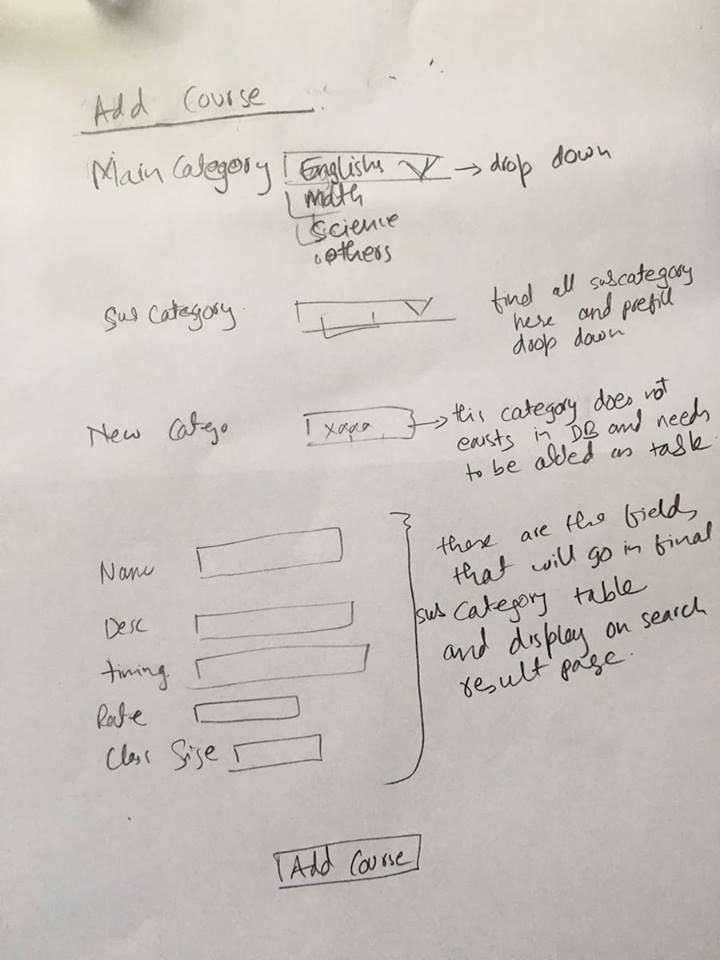 Add Course
Main Category English → drop down
Math
Science
others
Sub Category
find all subcategory
here and prefill
drop down
New Catego xaaa → this category does not
exists in DB and needs
to be added as task.
Name
Desc
timing
Rate
Class Size
these are the fields
that will go in final
sub category table
and display on search
result page.
Add Course